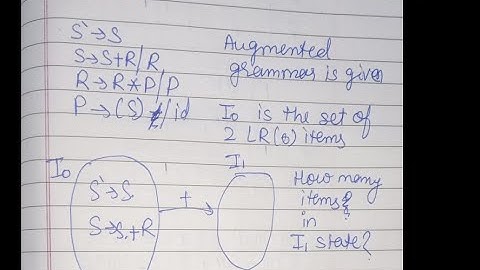 S'→S
S→S+R/R
R→R*P/P
P→(S)/id
Augmented
grammar is given
I0 is the set of
2 LR(0) items
I0
S'→S.
S→S.+R
+
I1
How many
items
in
I1 state?